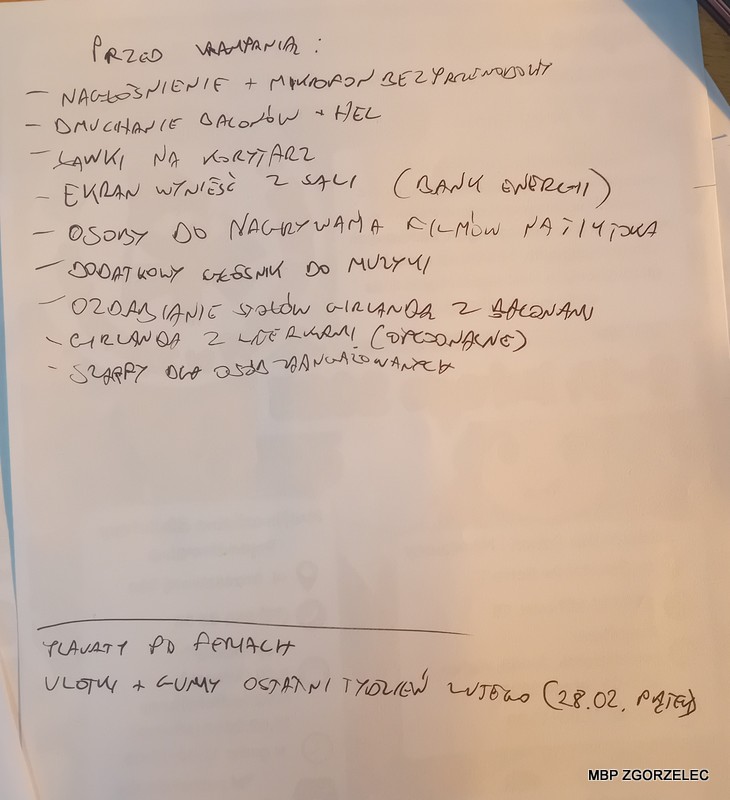 PRZED KAMPANIĄ:
- NAGŁOŚNIENIE + MIKROFON BEZPRZEWODOWY
- DMUCHANIE BALONÓW + HEL
- ŁAWKI NA KORYTARZ
- EKRAN WYNIEŚĆ Z SALI (BANK ENERGII)
- OSOBY DO NAGRYWANIA FILMÓW NA TIKTOKA
- DODATKOWY GŁOŚNIK DO MUZYKI
- OZDABIANIE STOŁÓW GIRLANDĄ Z BALONAMI
- GIRLANDA Z LITERKAMI (OPCJONALNE)
- SZARFY DLA OSÓB ZAANGAŻOWANYCH
PLAKATY PO FERIACH
ULOTKI + GUMY OSTATNI TYDZIEŃ LUTEGO (28.02. PIĄTEK)
MBP ZGORZELEC